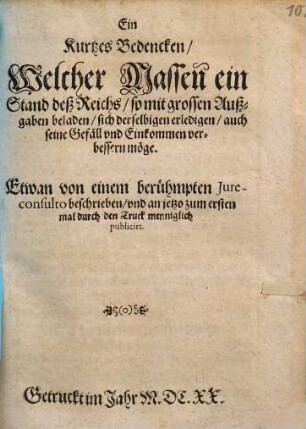 10.
Ein
Kurtzes Bedencken /
Welcher Massen ein
Stand deß Reichs / so mit grossen Auß-
gaben beladen / sich derselbigen erledigen / auch
seine Gefäll vnd Einkommen ver-
bessern möge.
Etwan von einem berühmpten Jure-
consulto beschrieben / vnd an jetzo zum ersten
mal durch den Truck menniglich
publicirt.
Getruckt im Jahr M.DC.XX.